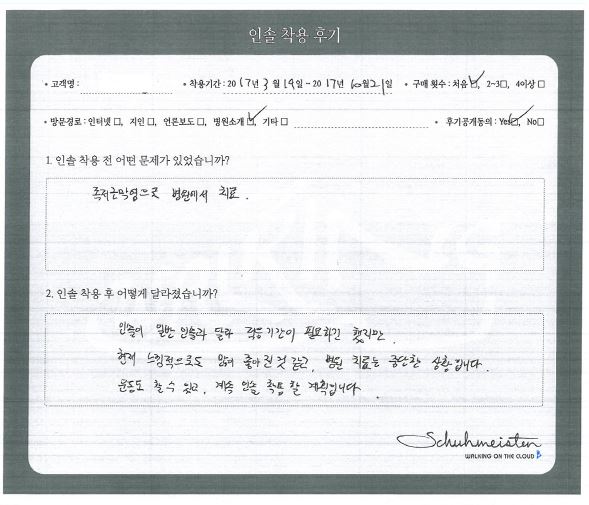 인솔 착용 후기
• 고객명 : • 착용기간 : 2017년 3월 14일 ~ 2017년 10월 21일 • 구매 횟수 : 처음☑, 2~3□, 4이상□
• 방문경로 : 인터넷 □, 지인 □, 언론보도 □, 병원소개 ☑, 기타 □ • 후기공개동의 : Yes☑, No□
1. 인솔 착용 전 어떤 문제가 있었습니까?
족저근막염으로 병원에서 치료.
2. 인솔 착용 후 어떻게 달라졌습니까?
인솔이 일반 인솔과 달라 적응기간이 필요하긴 했지만.
현재 느낌적으로도 많이 좋아진 것 같고, 병원 치료는 중단한 상황입니다.
운동도 할 수 있고, 계속 인솔 착용 할 계획입니다.
Schuhmeister
WALKING ON THE CLOUD B